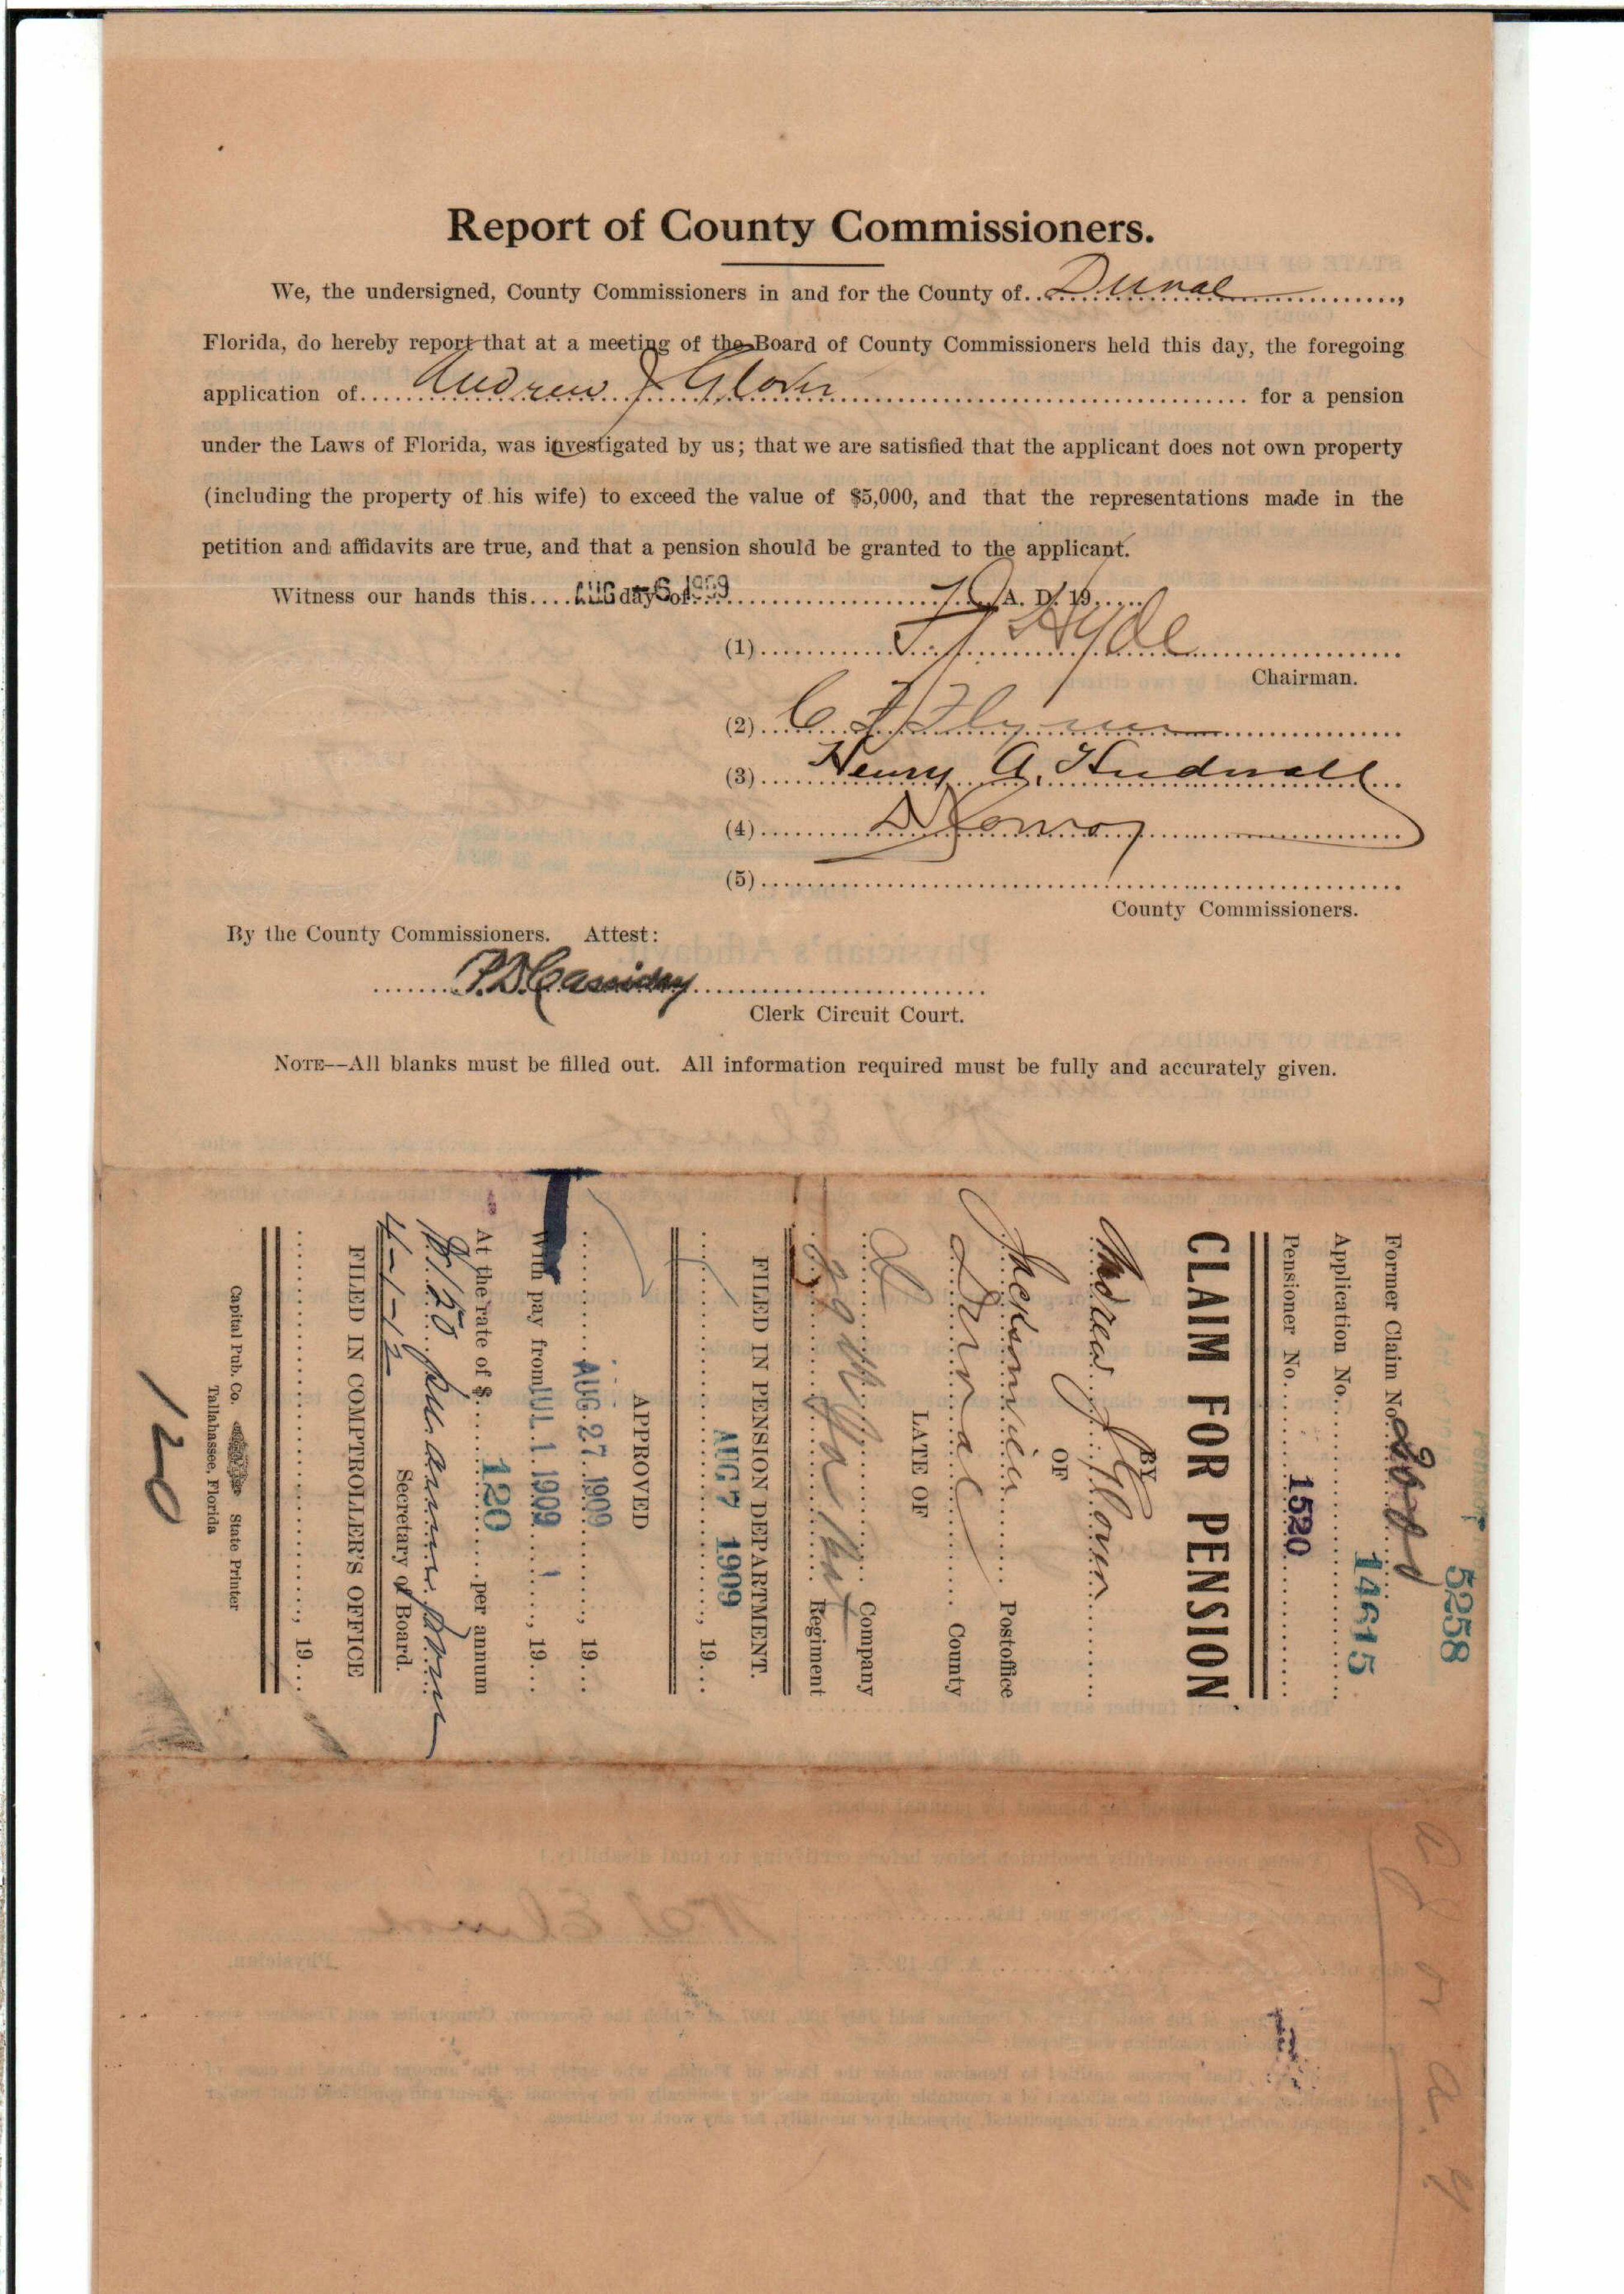 Report of County Commissioners.
We, the undersigned, County Commissioners in and for the County of Duval,
Florida, do hereby report that at a meeting of the Board of County Commissioners held this day, the foregoing
application of Andrew J Glover for a pension
under the Laws of Florida, was investigated by us; that we are satisfied that the applicant does not own property
(including the property of his wife) to exceed the value of $5,000, and that the representations made in the
petition and affidavits are true, and that a pension should be granted to the applicant.
Witness our hands this AUG -6 1909 day of A. D. 19
(1) Hyde
Chairman.
(2) C F Flynn
(3) Henry A. Hudnall
(4)
(5)
County Commissioners.
By the County Commissioners. Attest:
P.D. Cassidey
Clerk Circuit Court.
NOTE--All blanks must be filled out. All information required must be fully and accurately given.
5258
Former Claim No.
14615
Application No.
Pensioner No. 1520
CLAIM FOR PENSION
BY
Andrew J Glover
OF
Jacksonville Postoffice
Duval County
LATE OF
Company
Ga Regiment
FILED IN PENSION DEPARTMENT.
AUG 7 1909, 19
APPROVED
AUG 27 1909, 19
With pay from JUL 1 1909, 19
At the rate of $ 120 per annum
$150 per annum from
4-1-12
Secretary of Board.
FILED IN COMPTROLLER'S OFFICE
, 19
Capital Pub. Co. State Printer
Tallahassee, Florida
120